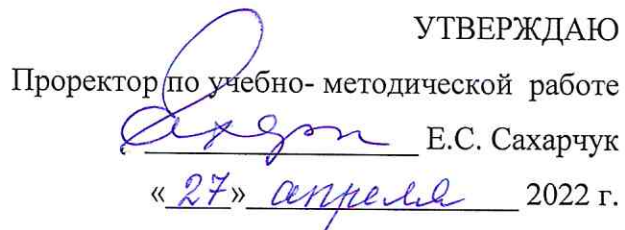 УТВЕРЖДАЮ
Проректор по учебно- методической работе
Е.С. Сахарчук
«27» апреля 2022 г.